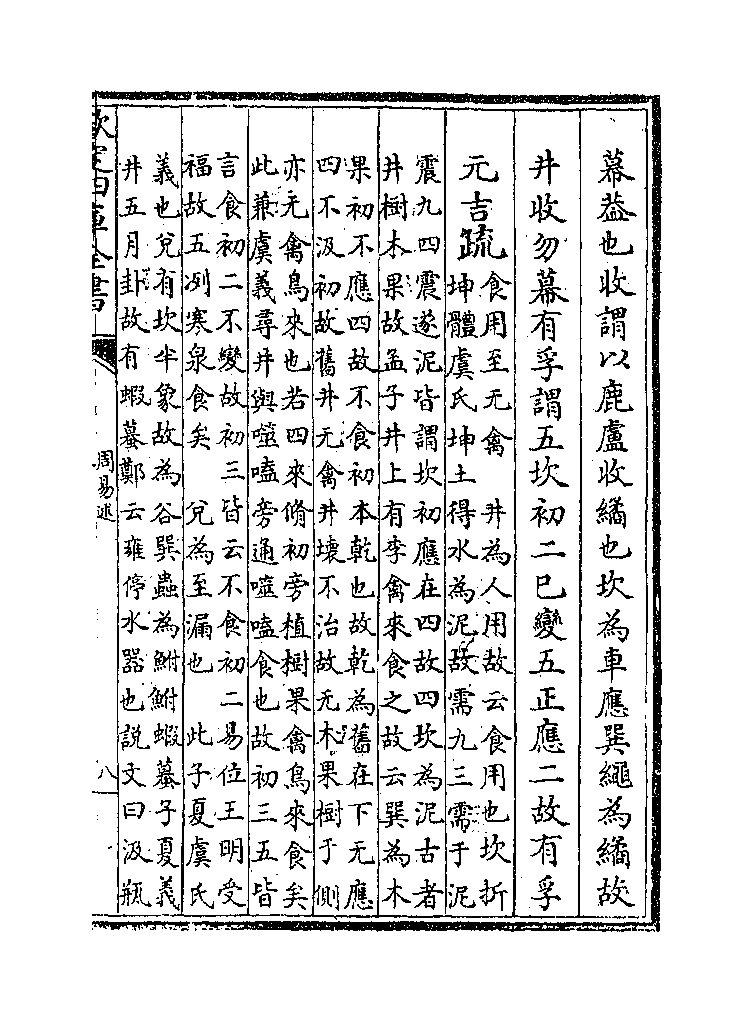 幕葢也收謂以鹿盧收繘也坎為車應巽繩為繘故
井收勿幕有孚謂五坎初二已變五正應二故有孚
元吉疏
食用至无禽　井為人用故云食用也坎折
坤體虞氏坤土得水為泥故需九三需于泥
震九四震遂泥皆謂坎初應在四故四坎為泥古者
井樹木果故孟子井上有李禽來食之故云巽為木
果初不應四故不食初本乾也故乾為舊在下无應
四不汲初故舊井无禽井壞不治故无木果樹于側
亦无禽鳥來也若四來脩初旁植樹果禽鳥來食矣
此兼虞義尋井與噬嗑旁通噬嗑食也故初三五皆
言食初二不變故初三皆云不食初二易位王明受
福故五冽寒泉食矣　兌為至漏也　此子夏虞氏
義也兌有坎半象故為谷巽蟲為鮒鮒蝦蟇子夏義
井五月卦故有蝦蟇鄭云雍停水器也說文曰汲瓶
欽定四庫全書
周易述
八